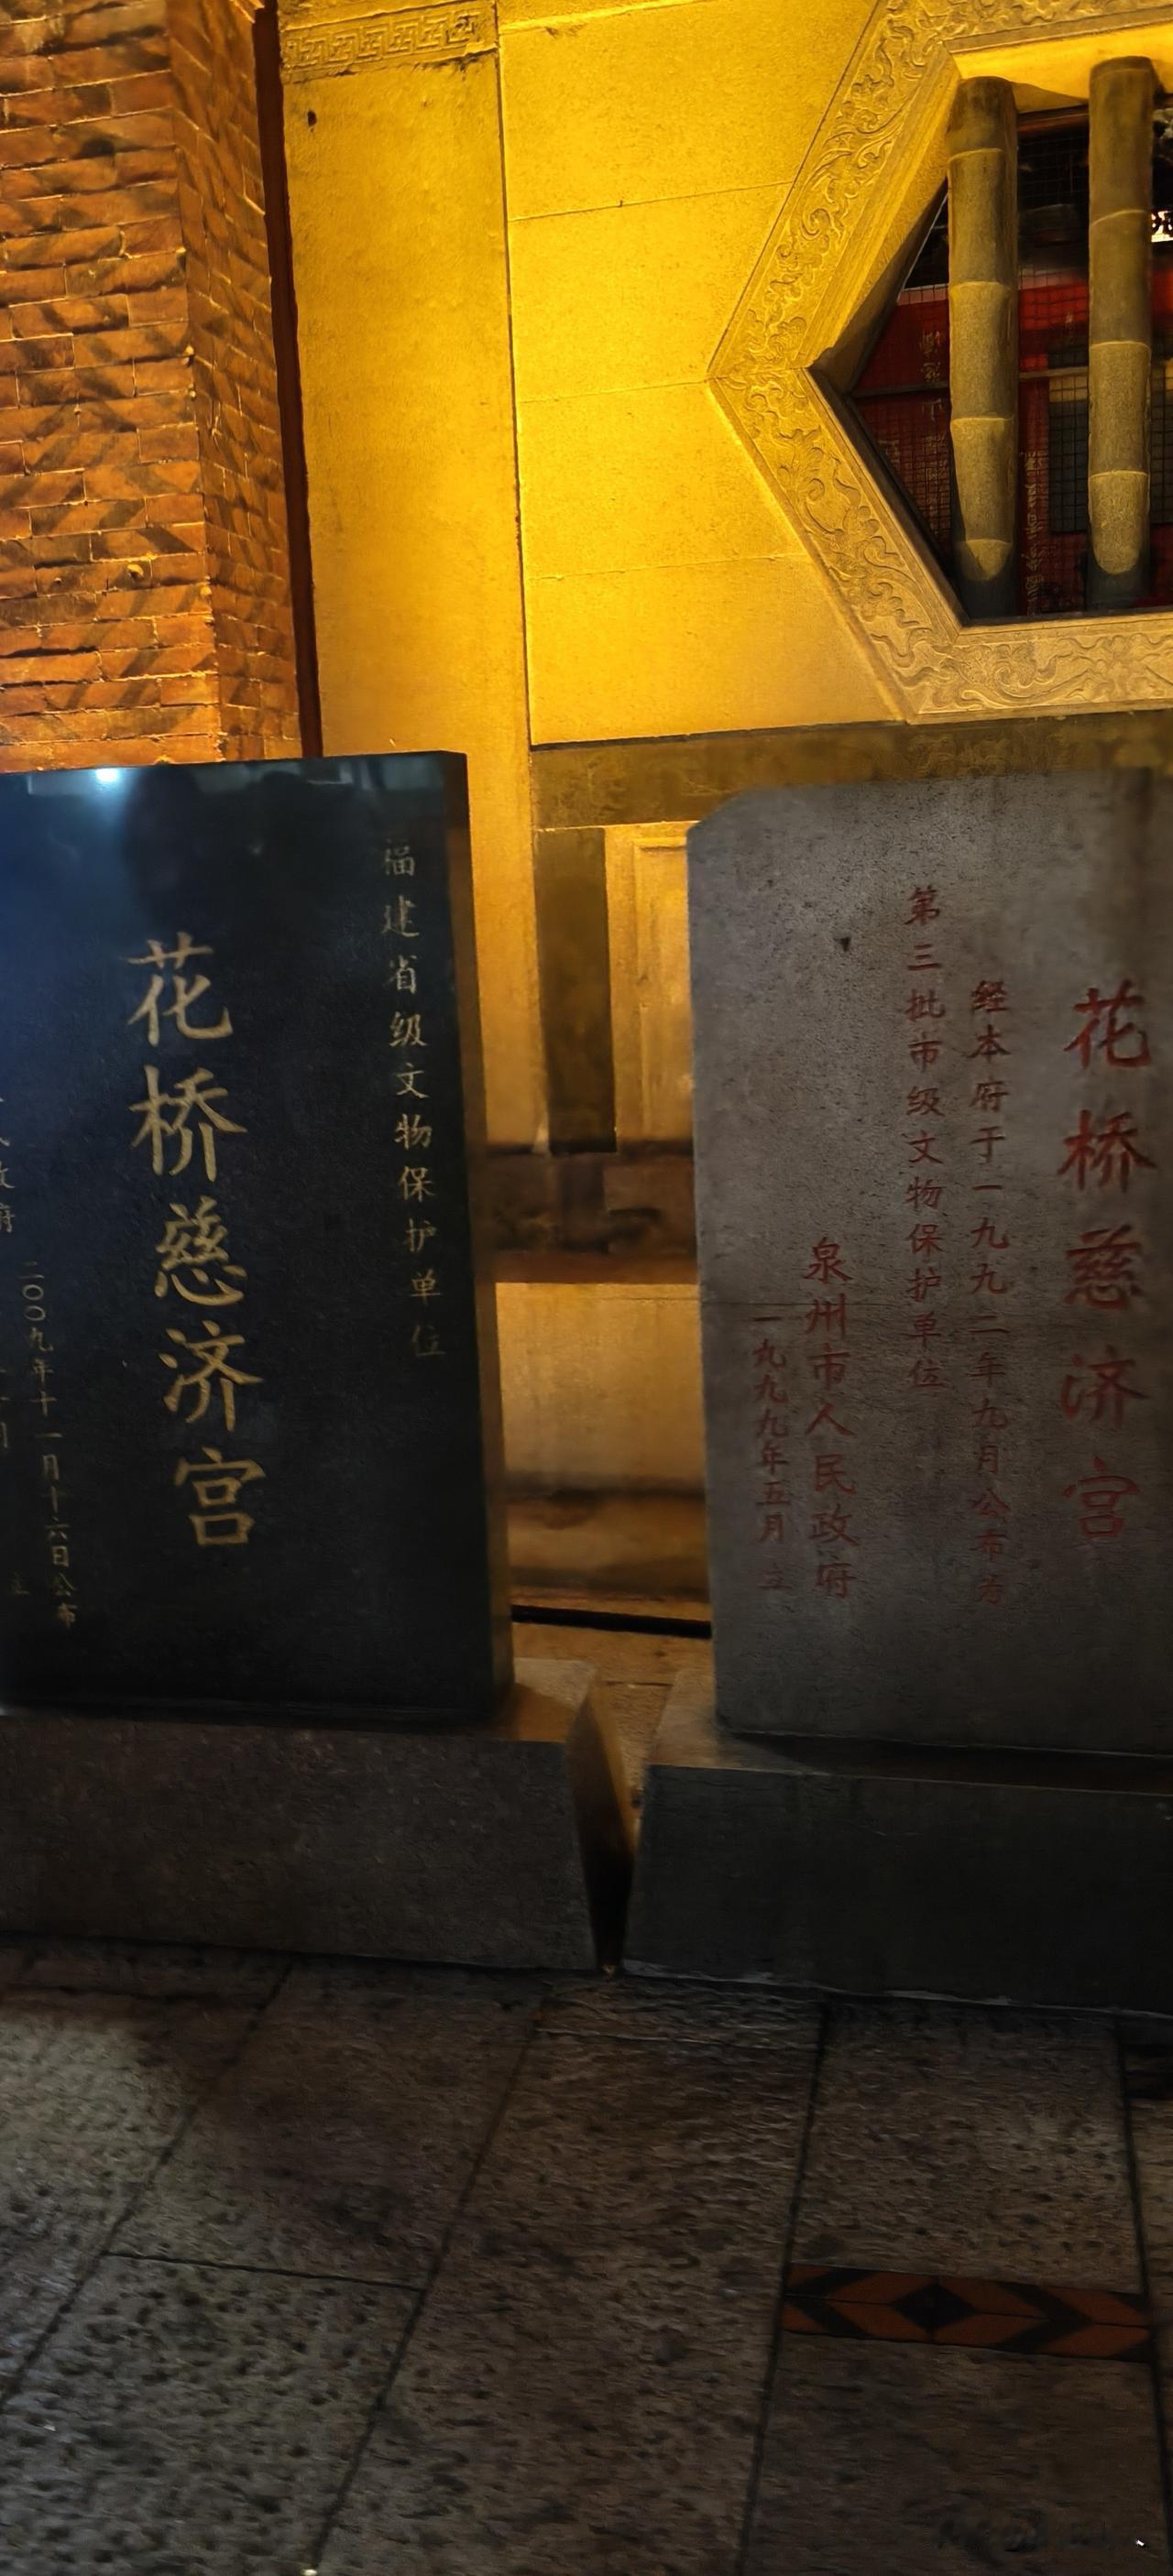 福建省级文物保护单位
花桥慈济宫
二〇〇九年十一月十六日公布
花桥慈济宫
经本府于一九九二年九月公布为
第三批市级文物保护单位
泉州市人民政府
一九九九年五月 立